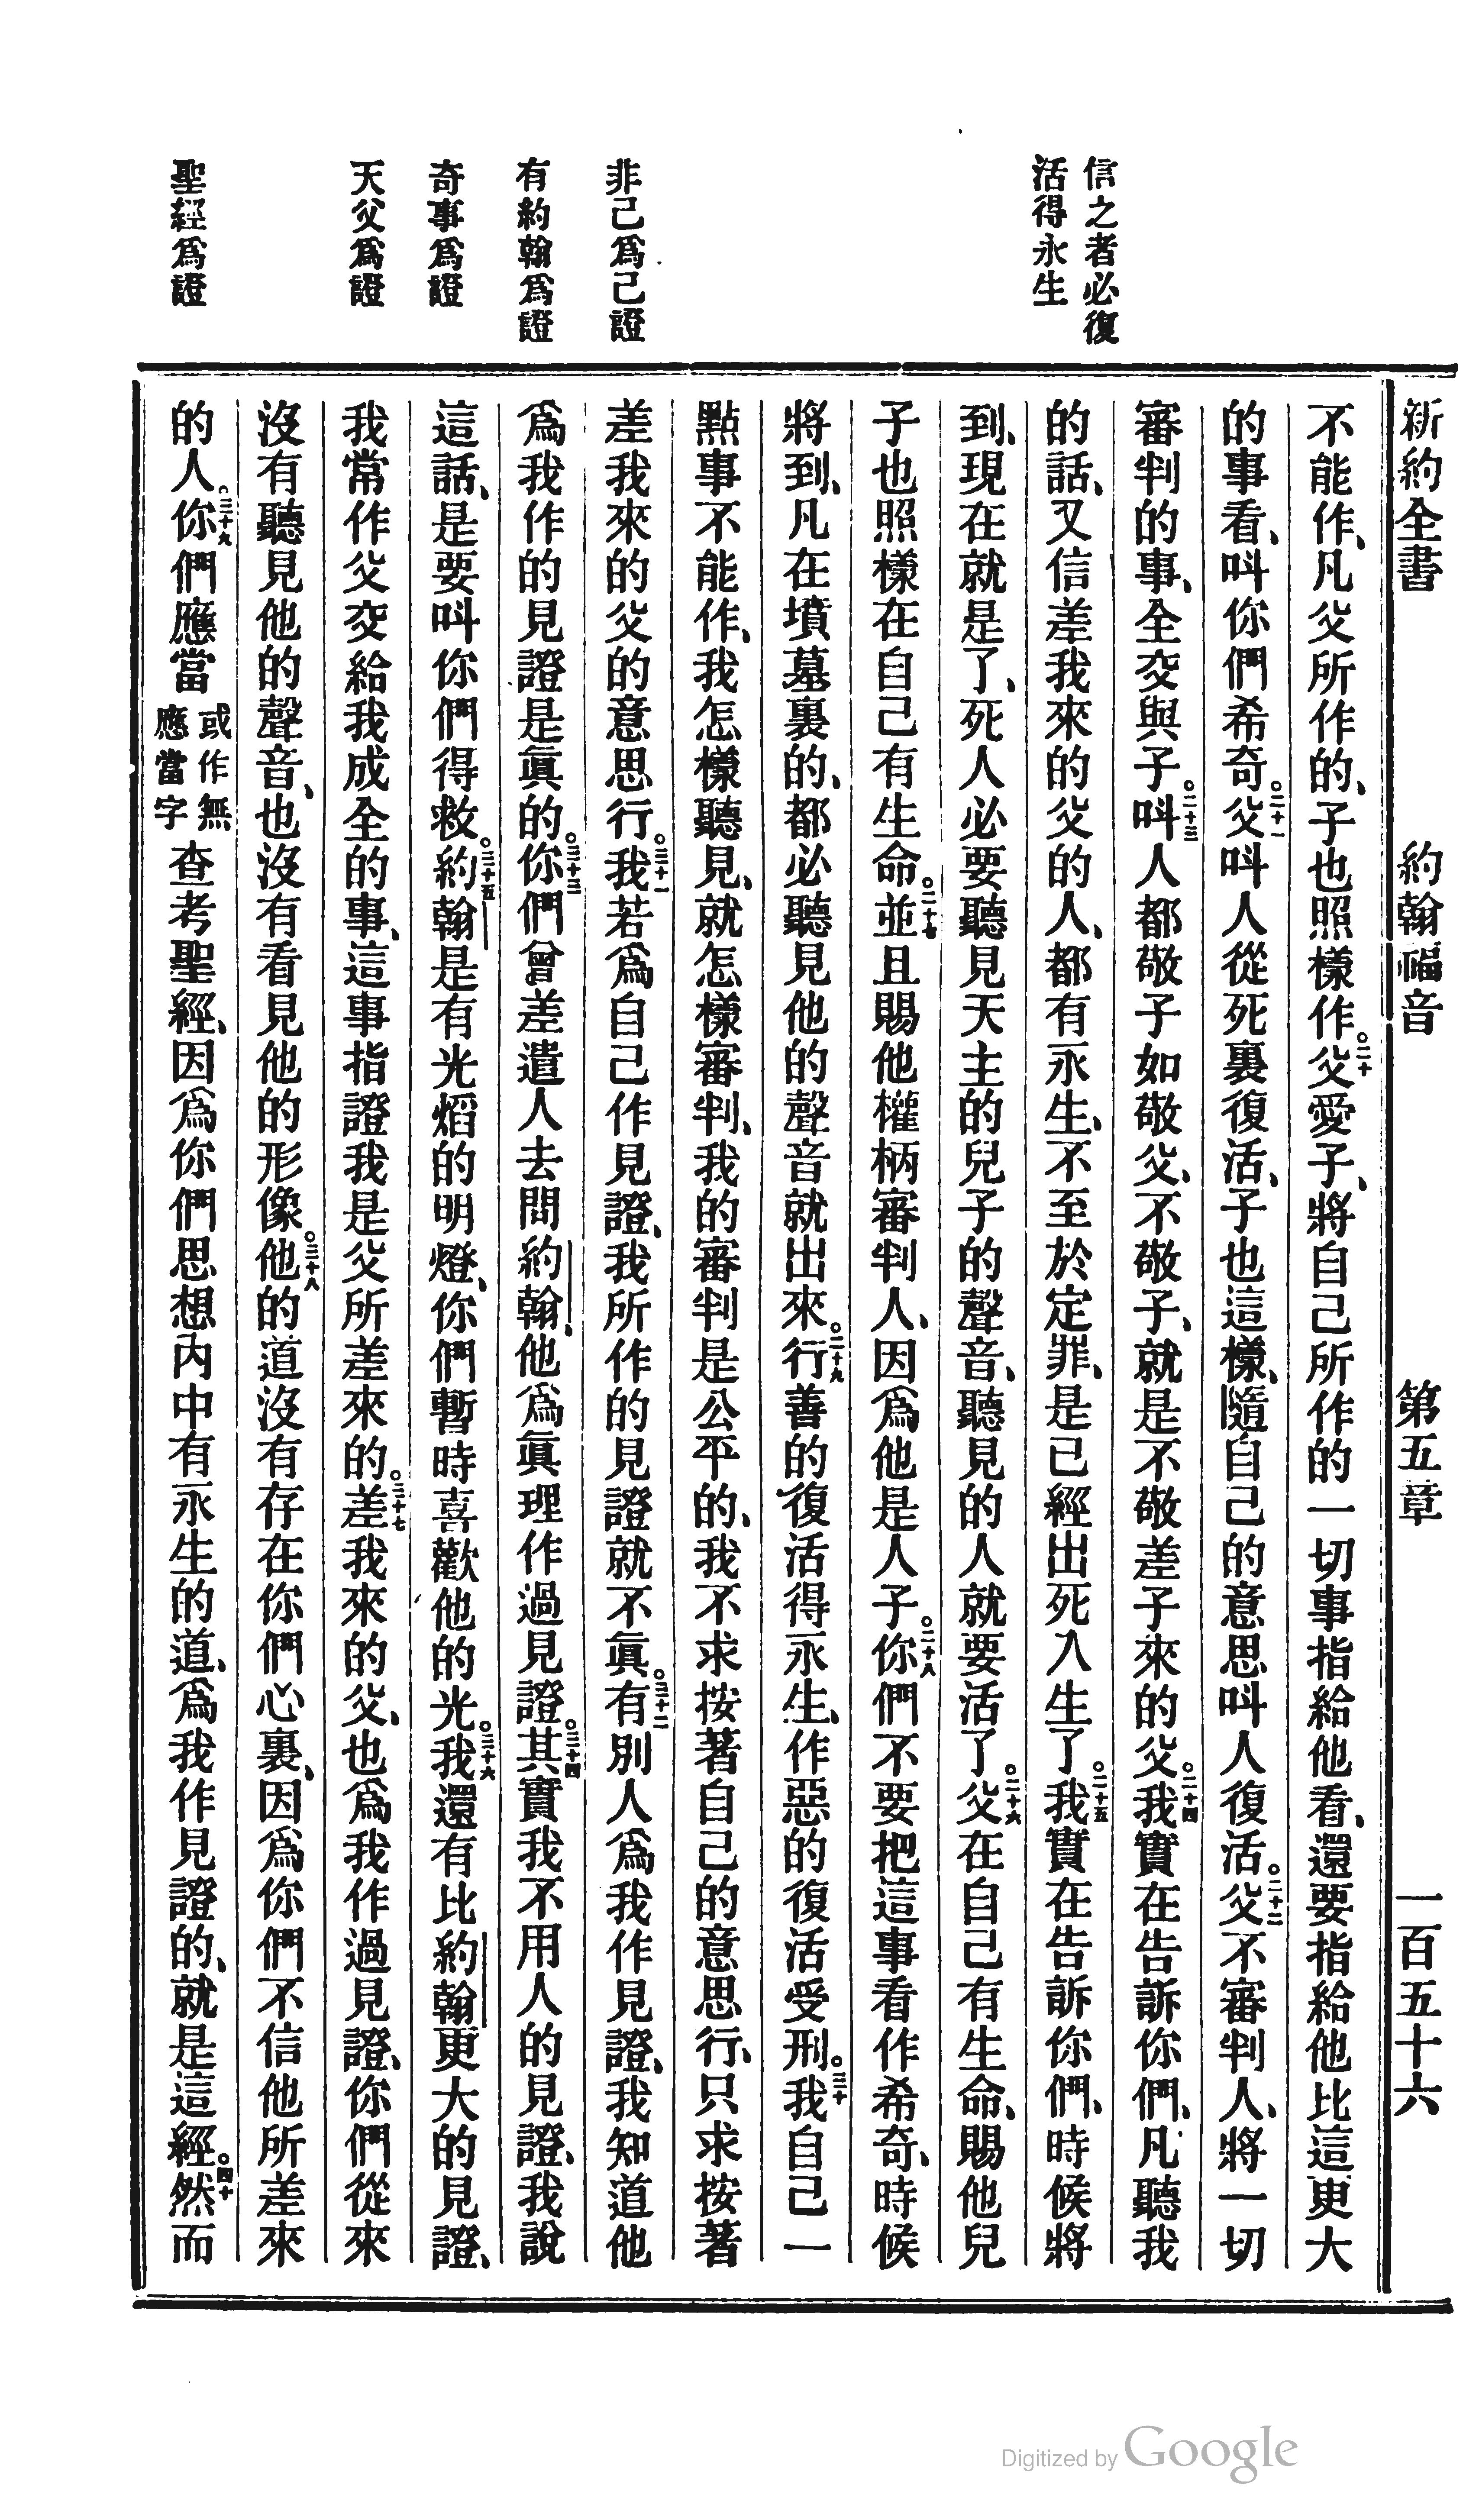 新約全書 約翰福音 第五章 一百五十六
信之者必復
活得永生
非己爲己證
有約翰爲證
奇事爲證
天父爲證
聖經爲證
不能作、凡父所作的、子也照樣作。二十父愛子、將自己所作的一切事指給他看、還要指給他比這更大
的事看、叫你們希奇。二十一父叫人從死裏復活、子也這樣、隨自己的意思叫人復活。二十二父不審判人、將一切
審判的事、全交與子。二十三叫人都敬子如敬父、不敬子、就是不敬差子來的父。二十四我實在告訴你們、凡聽我
的話、又信差我來的父的人、都有永生、不至於定罪、是已經出死入生了。二十五我實在告訴你們、時候將
到、現在就是了、死人必要聽見天主的兒子的聲音、聽見的人就要活了。二十六父在自己有生命、賜他兒
子也照樣在自己有生命。二十七並且賜他權柄審判人、因爲他是人子。二十八你們不要把這事看作希奇、時候
將到、凡在墳墓裏的、都必聽見他的聲音就出來。二十九行善的復活得永生、作惡的復活受刑。三十我自己一
點事不能作、我怎樣聽見、就怎樣審判、我的審判是公平的、我不求按著自己的意思行、只求按著
差我來的父的意思行。三十一我若爲自己作見證、我所作的見證就不眞。三十二有別人爲我作見證、我知道他
爲我作的見證是眞的。三十三你們曾差遣人去問約翰、他爲眞理作過見證。三十四其實我不用人的見證、我說
這話、是要叫你們得救。三十五約翰是有光熖的明燈、你們暫時喜歡他的光。三十六我還有比約翰更大的見證、
我常作父交給我成全的事、這事指證我是父所差來的。三十七差我來的父、也爲我作過見證、你們從來
沒有聽見他的聲音、也沒有看見他的形像。三十八他的道沒有存在你們心裏、因爲你們不信他所差來
的人。三十九你們應當或作無應當字查考聖經、因爲你們思想內中有永生的道、爲我作見證的、就是這經。四十然而
Digitized by Google